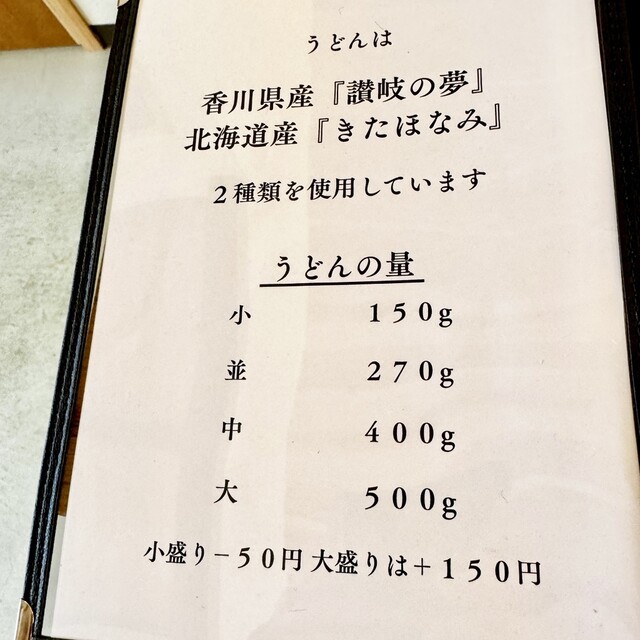 うどんは
香川県産『讃岐の夢』
北海道産『きたほなみ』
２種類を使用しています
うどんの量
小 １５０g
並 ２７０g
中 ４００g
大 ５００g
小盛り－５０円 大盛りは＋１５０円